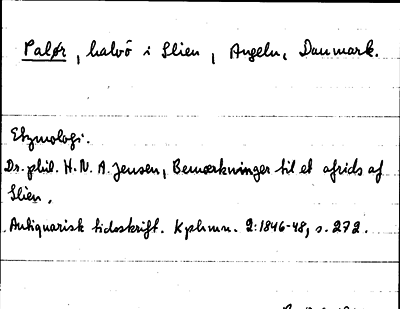 Palør, halvö i Slien, Angeln, Danmark.
Etymologi.
Dr. phil. H. N. A. Jensen, Bemærkninger til et afrids af
Slien.
Antiquarisk tidsskrift. Kphmn. 2:1846-48, s. 272.